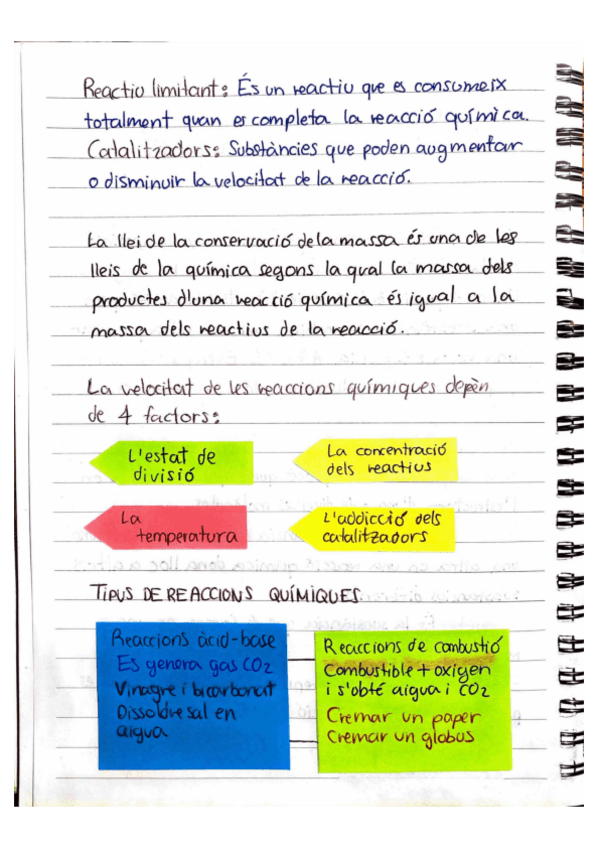 Reactiu limitant: És un reactiu que es consumeix
totalment quan es completa la reacció química.
Catalitzadors: Substàncies que poden augmentar
o disminuir la velocitat de la reacció.
La llei de la conservació de la massa és una de les
lleis de la química segons la qual la massa dels
productes d'una reacció química és igual a la
massa dels reactius de la reacció.
La velocitat de les reaccions químiques depèn
de 4 factors:
L'estat de
divisió
La concentració
dels reactius
La
temperatura
L'addicció dels
catalitzadors
TIPUS DE REACCIONS QUÍMIQUES
Reaccions àcid-base
Es genera gas CO2
Vinagre i bicarbonat
Dissoldre sal en
aigua
Reaccions de combustió
Combustible + oxigen
i s'obté aigua i CO2
Cremar un paper
Cremar un globus